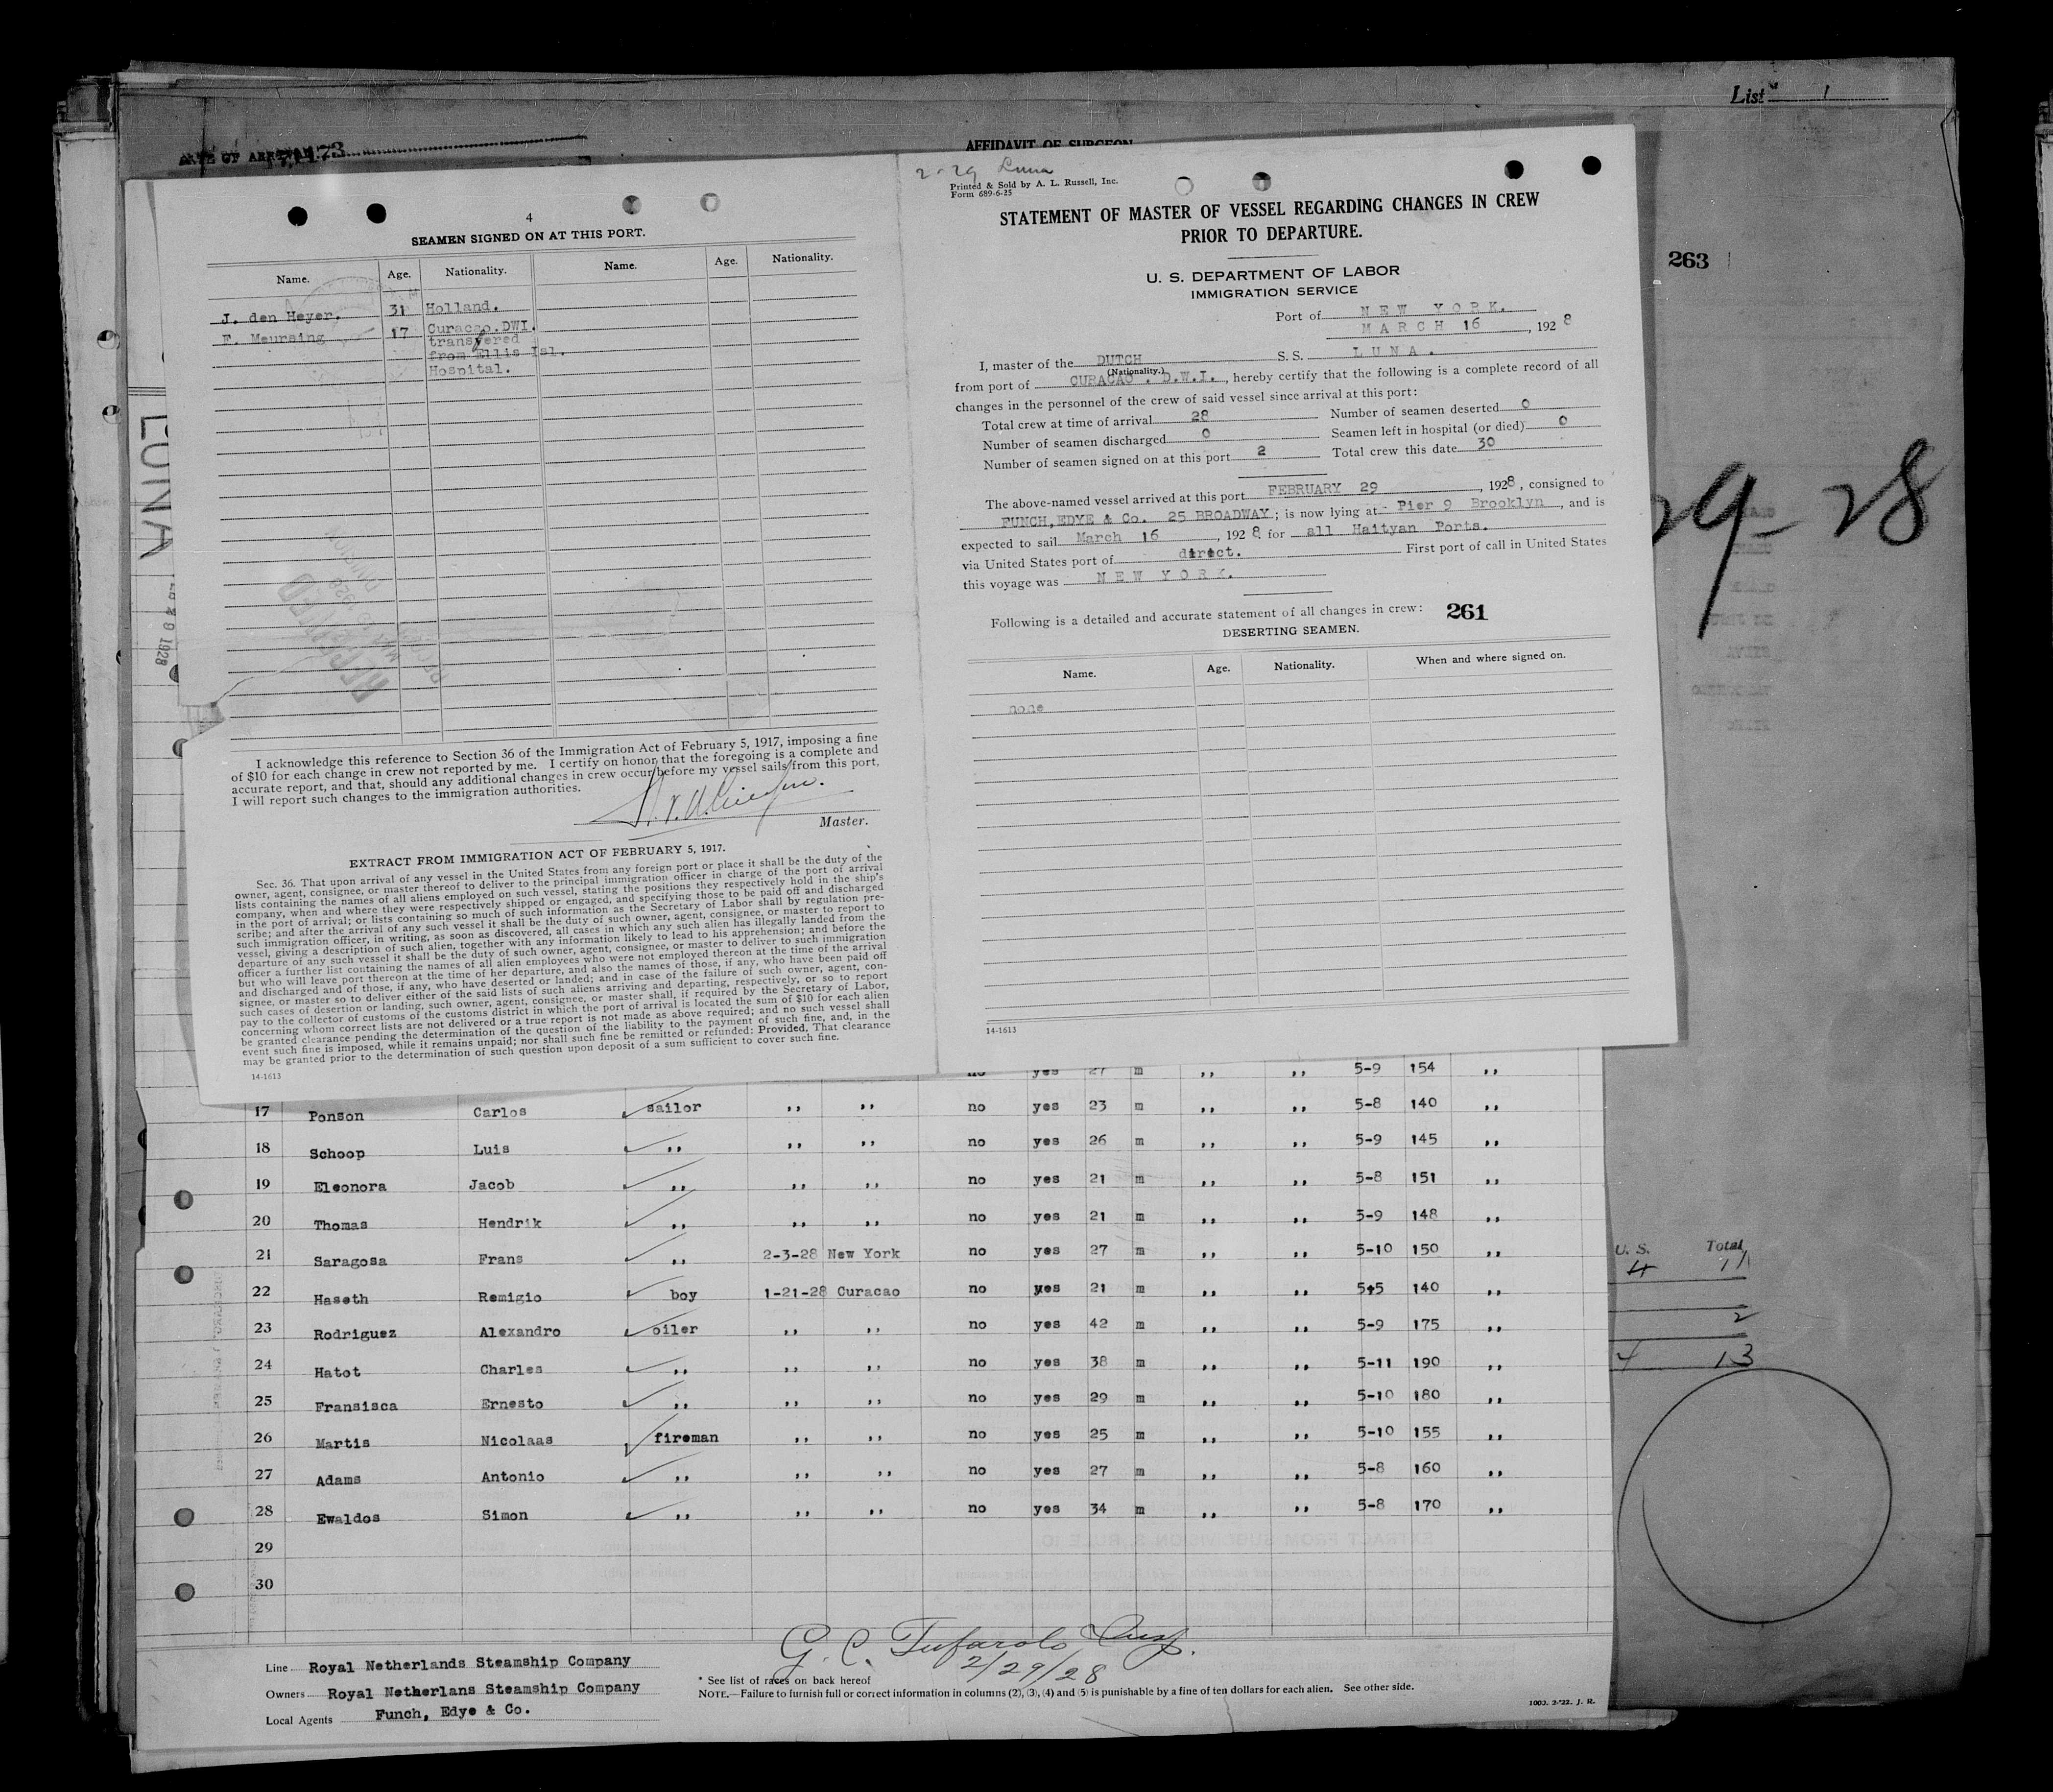 List 1
DATE OF ARRIVAL
AFFIDAVIT OF SURGEON
263
29-28
LUNA
4
SEAMEN SIGNED ON AT THIS PORT.
Name. Age. Nationality. Name. Age. Nationality.
J. den Heyer. 31 Holland.
F. Meursing 17 Curacao.DWI.
transfered
from Ellis Isl.
Hospital.
I acknowledge this reference to Section 36 of the Immigration Act of February 5, 1917, imposing a fine
of $10 for each change in crew not reported by me. I certify on honor that the foregoing is a complete and
accurate report, and that, should any additional changes in crew occur before my vessel sails from this port,
I will report such changes to the immigration authorities.
Master.
EXTRACT FROM IMMIGRATION ACT OF FEBRUARY 5, 1917.
Sec. 36. That upon arrival of any vessel in the United States from any foreign port or place it shall be the duty of the
owner, agent, consignee, or master thereof to deliver to the principal immigration officer in charge of the port of arrival
lists containing the names of all aliens employed on such vessel, stating the positions they respectively hold in the ship's
company, when and where they were respectively shipped or engaged, and specifying those to be paid off and discharged
in the port of arrival; or lists containing so much of such information as the Secretary of Labor shall by regulation pre-
scribe; and after the arrival of any such vessel it shall be the duty of such owner, agent, consignee, or master to report to
such immigration officer, in writing, as soon as discovered, all cases in which any such alien has illegally landed from the
vessel, giving a description of such alien, together with any information likely to lead to his apprehension; and before the
departure of any such vessel it shall be the duty of such owner, agent, consignee, or master to deliver to such immigration
officer a further list containing the names of all alien employees who were not employed thereon at the time of the arrival
but who will leave port thereon at the time of her departure, and also the names of those, if any, who have been paid off
and discharged and of those, if any, who have deserted or landed; and in case of the failure of such owner, agent, con-
signee, or master so to deliver either of the said lists of such aliens arriving and departing, respectively, or so to report
such cases of desertion or landing, such owner, agent, consignee, or master shall, if required by the Secretary of Labor,
pay to the collector of customs of the customs district in which the port of arrival is located the sum of $10 for each alien
concerning whom correct lists are not delivered or a true report is not made as above required; and no such vessel shall
be granted clearance pending the determination of the question of the liability to the payment of such fine, and, in the
event such fine is imposed, while it remains unpaid; nor shall such fine be remitted or refunded: Provided, That clearance
may be granted prior to the determination of such question upon deposit of a sum sufficient to cover such fine.
14-1613
2-29 Luna
Printed & Sold by A. L. Russell, Inc.
Form 689-6-25
STATEMENT OF MASTER OF VESSEL REGARDING CHANGES IN CREW
PRIOR TO DEPARTURE.
U. S. DEPARTMENT OF LABOR
IMMIGRATION SERVICE
Port of NEW YORK.
MARCH 16, 1928
I, master of the DUTCH S. S. LUNA.
(Nationality.)
from port of CURACAO. D.W.I., hereby certify that the following is a complete record of all
changes in the personnel of the crew of said vessel since arrival at this port:
Total crew at time of arrival 28 Number of seamen deserted 0
Number of seamen discharged 0 Seamen left in hospital (or died) 0
Number of seamen signed on at this port 2 Total crew this date 30
The above-named vessel arrived at this port FEBRUARY 29, 1928, consigned to
FUNCH,EDYE & Co. 25 BROADWAY; is now lying at Pier 9 Brooklyn, and is
expected to sail March 16, 1928 for all Haityan Ports.
via United States port of direct. First port of call in United States
this voyage was NEW YORK.
Following is a detailed and accurate statement of all changes in crew: 261
DESERTING SEAMEN.
Name. Age. Nationality. When and where signed on.
none
14-1613
no yes 27 m ,, ,, 5-9 154 ,,
17 Ponson Carlos sailor ,, ,, no yes 23 m ,, ,, 5-8 140 ,,
18 Schoop Luis ,, ,, ,, no yes 26 m ,, ,, 5-9 145 ,,
19 Eleonora Jacob ,, ,, ,, no yes 21 m ,, ,, 5-8 151 ,,
20 Thomas Hendrik ,, ,, ,, no yes 21 m ,, ,, 5-9 148 ,,
21 Saragosa Frans ,, 2-3-28 New York no yes 27 m ,, ,, 5-10 150 ,,
22 Haseth Remigio boy 1-21-28 Curacao no yes 21 m ,, ,, 5+5 140 ,,
23 Rodriguez Alexandro oiler ,, ,, no yes 42 m ,, ,, 5-9 175 ,,
24 Hatot Charles ,, ,, ,, no yes 38 m ,, ,, 5-11 190 ,,
25 Fransisca Ernesto ,, ,, ,, no yes 29 m ,, ,, 5-10 180 ,,
26 Martis Nicolaas fireman ,, ,, no yes 25 m ,, ,, 5-10 155 ,,
27 Adams Antonio ,, ,, ,, no yes 27 m ,, ,, 5-8 160 ,,
28 Ewaldos Simon ,, ,, ,, no yes 34 m ,, ,, 5-8 170 ,,
29
30
U. S. Total
4 11
2
4 13
G. C. Tufarolo Insp.
2/29/28
Line Royal Netherlands Steamship Company
Owners Royal Netherlans Steamship Company
Local Agents Funch, Edye & Co.
* See list of races on back hereof
NOTE.—Failure to furnish full or correct information in columns (2), (3), (4) and (5) is punishable by a fine of ten dollars for each alien. See other side.
1003. 2-'22. J. R.